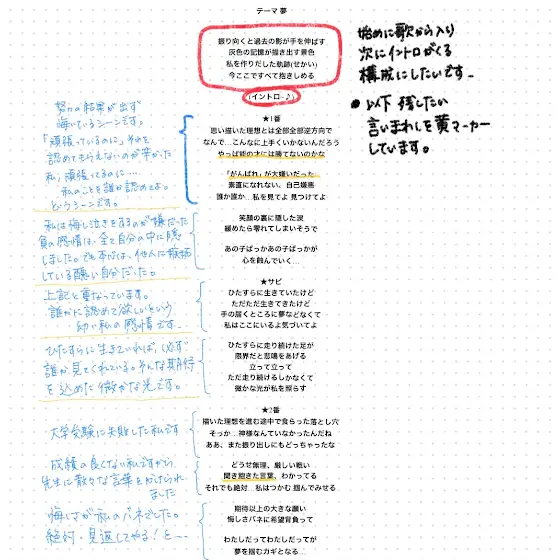 テーマ 夢
振り向くと過去の影が手を伸ばす
灰色の記憶が描き出す景色
私を作りだした軌跡(せかい)
今ここですべて抱きしめる
(イントロ~♪)
始めに歌から入り
次にイントロがくる
構成にしたいです。
● 以下 残したい
言いまわしを黄マーカー
しています。
★1番
思い描いた理想とは全部全部逆方向で
なんで…こんなに上手くいかないんだろう
やっぱ能の才には勝てないのかな
「がんばれ」が大嫌いだった
素直になれない、自己嫌悪
誰か誰か…私を見てよ 見つけてよ
努力の結果が出ず
悔いているシーンです。
「頑張っているのに」それを
認めてもらえないのが辛かった
私、頑張ってるのに…
私のことを誰か認めてよ。
というシーンです。
笑顔の裏に隠した涙
緩めたら零れてしまいそうで
あの子ばっかあの子ばっかが
心を蝕んでいく…
私は悔し泣きをするのが嫌だった
負の感情は、全て自分の中に隠
しました。でも本当は、他人に嫉妬
している醜い自分だった。
★サビ
ひたすらに生きていたけど
ただただ生きてきたけど
手の届くところに夢などなくて
私はここにいるよ気づいてよ
上記と重なっています。
誰かに認めて欲しいという
幼い私の感情です…
ひたすらに走り続けた足が
限界だと悲鳴をあげる
立って立って
ただ走り続けるしかなくて
微かな光が私を照らす
ひたすらに生きていれば、必ず
誰か見てくれている。そんな期待
を込めた微かな光です。
★2番
描いた理想を進む途中で食らった落とし穴
そっか…神様なんていなかったんだね
ああ、また振り出しにもどっちゃったな
大学受験に失敗した私です
どうせ無理、厳しい戦い
聞き飽きた言葉、わかってる
それでも絶対…私はつかむ 掴んでみせる
成績の良くない私ですから
先生に散々な言葉をかけられ
ました
期待以上の大きな願い
悔しさバネに希望背負って
わたしだってわたしだってが
夢を掴むカギとなる…
悔しさが私のバネでした。
絶対・見返してやる!と…